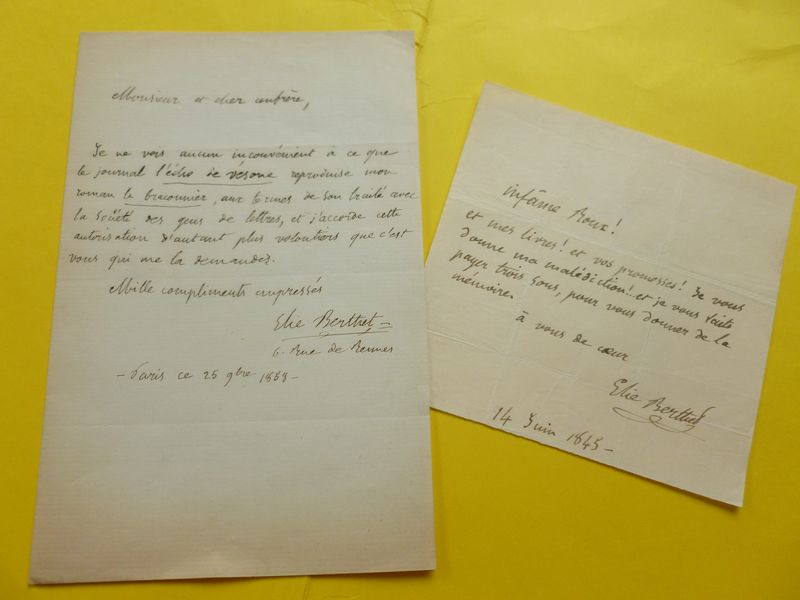 Monsieur et cher confrère,
Je ne vois aucun inconvénient à ce que
le journal l'écho de vésone reproduise mon
roman le braconnier, aux termes de son traité avec
la société des gens de lettres, et j'accorde cette
autorisation d'autant plus volontiers que c'est
vous qui me la demandez.
Mille compliments empressés
Elie Berthet
6. Rue de Rennes
Paris ce 25 9bre
infâme Roux!
et mes livres! et vos promesses! Je vous
donne ma malédiction!.. et je vous
payer trois sous, pour vous donner de la
mémoire.
à vous de cœur
Elie Berthet
14 Juin 1845